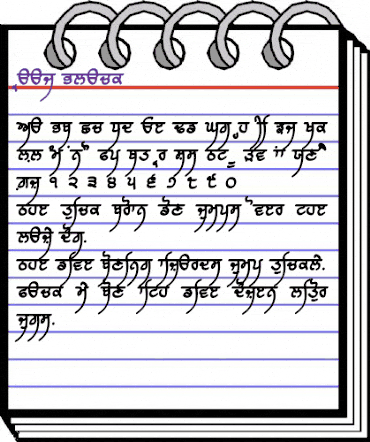 ੍ਰੳੳਜ ਭਲੳਚਕ
ਅੳ ਭਬ ਛਚ ਧਦ ਓੲ ਢਡ ਘਗ ੍ਹਹ ੀਿ ਝਜ ਖਕ
ਲ਼ਲ ੰਮ ਂਨ ੌੋ ਫਪ ਥਤ ੍ਰਰ ਸ਼ਸ ਠਟ ੂੁ ੜਵ ਾਂਾ ਯਣ ੈੇ
ਗ਼ਜ਼ ੧ ੨ ੩ ੪ ੫ ੬ ੭ ੮ ੯ ੦
ਠਹੲ ਤੁਚਿਕ ਬਰੋਾਨ ਡੋਣ ਜੁਮਪਸ ੋਵੲਰ ਟਹੲ
ਲੳਜ਼ੇ ਦੋਗ.
ਠਹੲ ਡਵਿੲ ਬੋਣਨਿਗ ਾਜ਼ਿੳਰਦਸ ਜੁਮਪ ਤੁਚਿਕਲੇ.
ਫੳਚਕ ਮੇ ਬੋਣ ਾਟਿਹ ਡਵਿੲ ਦੋਜ਼ੲਨ ਲਤਿੁੋਰ
ਜੁਗਸ.